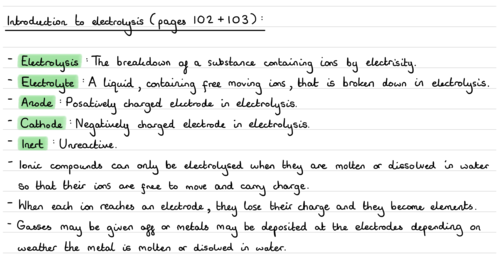 Introduction to electrolysis (pages 102 + 103) :
- Electrolysis : The breakdown of a substance containing ions by electrisity.
- Electrolyte : A liquid, containing free moving ions, that is broken down in electrolysis.
- Anode : Posatively charged electrode in electrolysis.
- Cathode : Negatively charged electrode in electrolysis.
- Inert : Unreactive.
- Ionic compounds can only be electrolysed when they are molten or dissolved in water
so that their ions are free to move and carry charge.
- When each ion reaches an electrode, they lose their charge and they become elements.
- Gasses may be given off or metals may be deposited at the electrodes depending on
weather the metal is molten or disolved in water.